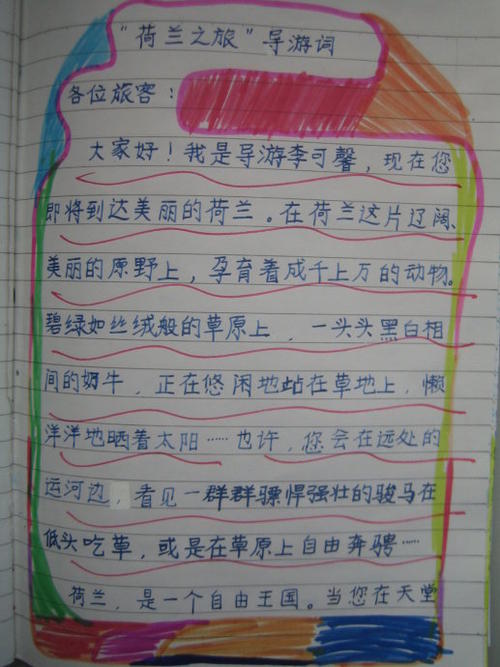 “荷兰之旅”导游词
各位旅客：
大家好！我是导游李可馨，现在您
即将到达美丽的荷兰。在荷兰这片辽阔、
美丽的原野上，孕育着成千上万的动物。
碧绿如丝绒般的草原上，一头头黑白相
间的奶牛，正在悠闲地站在草地上，懒
洋洋地晒着太阳……也许，您会在远处的
运河边，看见一群群骠悍强壮的骏马在
低头吃草，或是在草原上自由奔骋……
荷兰，是一个自由王国。当您在天堂